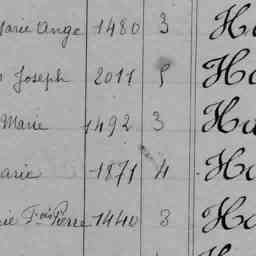 Marie Ange 1480 3 Ha
Joseph 2011 5 Ha
Marie 1492 3 Ha
Marie 1871 4 Ha
Fois Pierre 1440 3 Ha